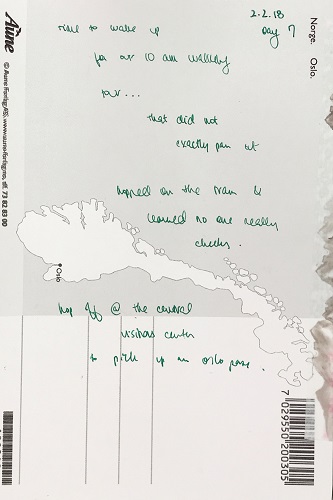 2.2.18
Day 7
time to wake up
for our 10 am walking
tour...
that did not
exactly pan out
hopped on the tram &
learned no one really
checks.
hop off @ the central
visitors center
to pick up an oslo pass.
Norge. Oslo.
Aune
© Aune Forlag AS, www.aune-forlag.no, tlf. 73 82 83 00
Oslo
7 029550 200305